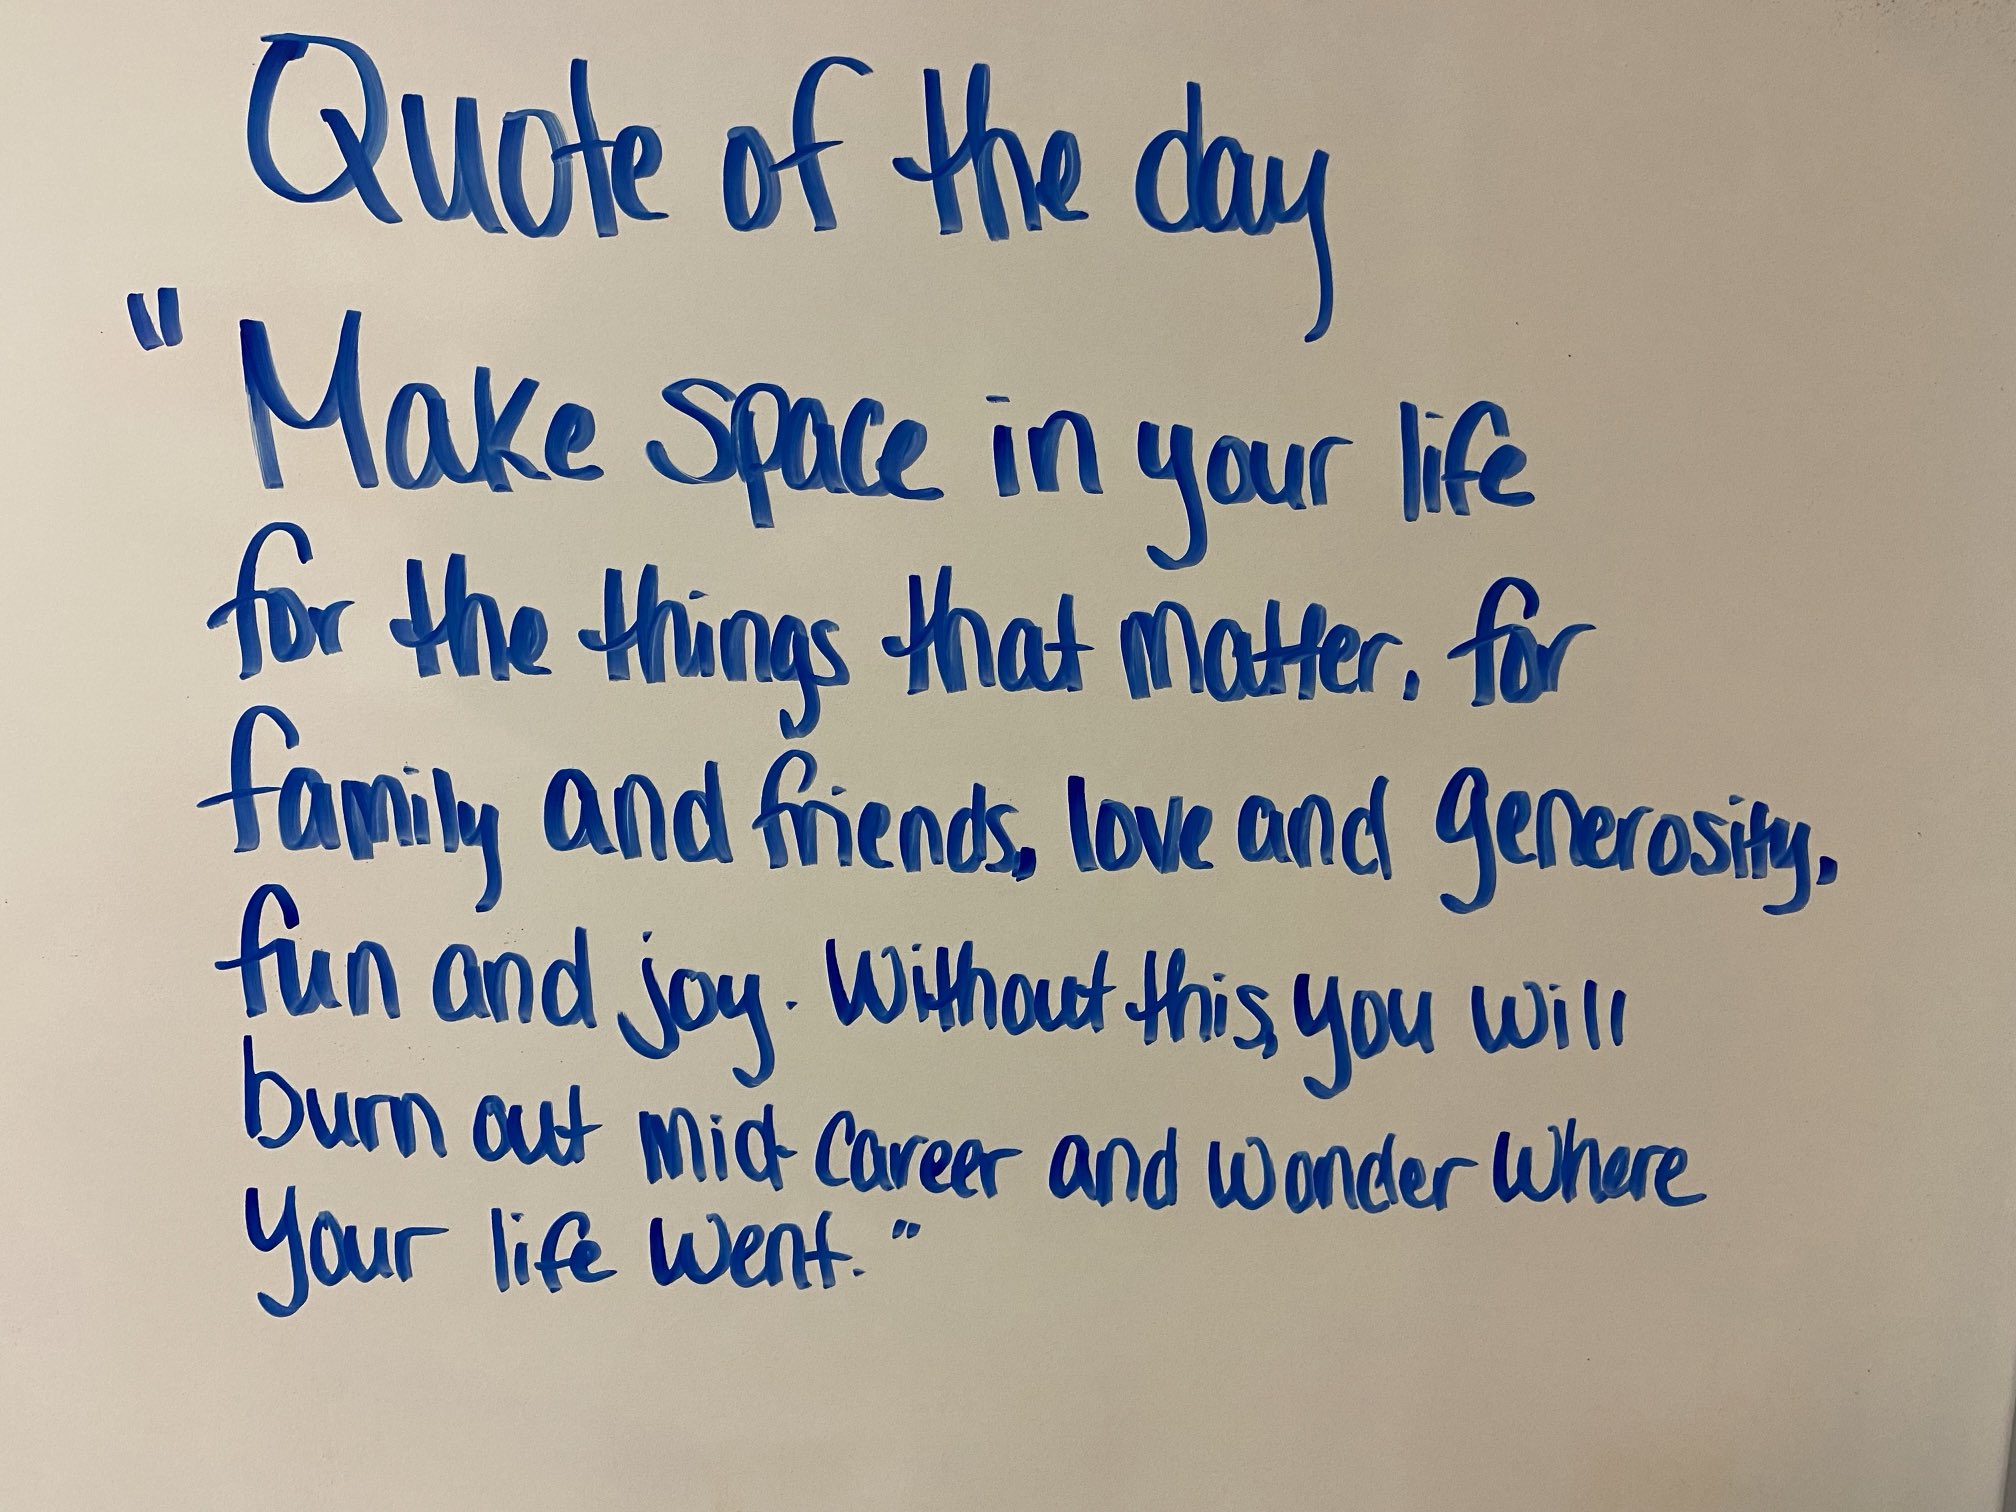 Quote of the day
"Make space in your life
for the things that matter, for
family and friends, love and generosity,
fun and joy. Without this, you will
burn out mid-career and wonder where
your life went."